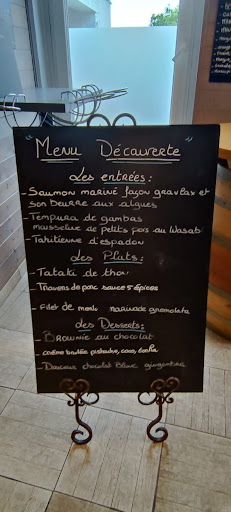 " Menu Découverte "
Les entrées :
- Saumon mariné façon gravlax et
son beurre aux algues
- Tempura de gambas
mousseline de petits pois au Wasabi
- Tahitienne d'espadon
Les Plats :
- Tataki de thon
- Travers de porc sauce 5 épices
- Filet de marinade gremolata
Les Desserts :
- Brownie au chocolat
- crème brulée pistache, coco, tonka
- Douceur chocolat Blanc gingembre